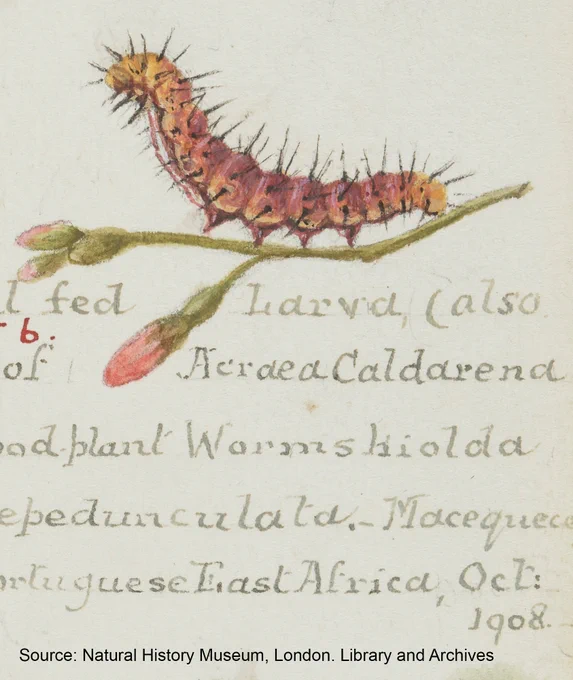 l fed Larva, (also
b.
of Acraea Caldarena
ood-plant Wormskiolda
epedunculata. - Macequece
ortuguese East Africa, Oct:
1908.
Source: Natural History Museum, London. Library and Archives